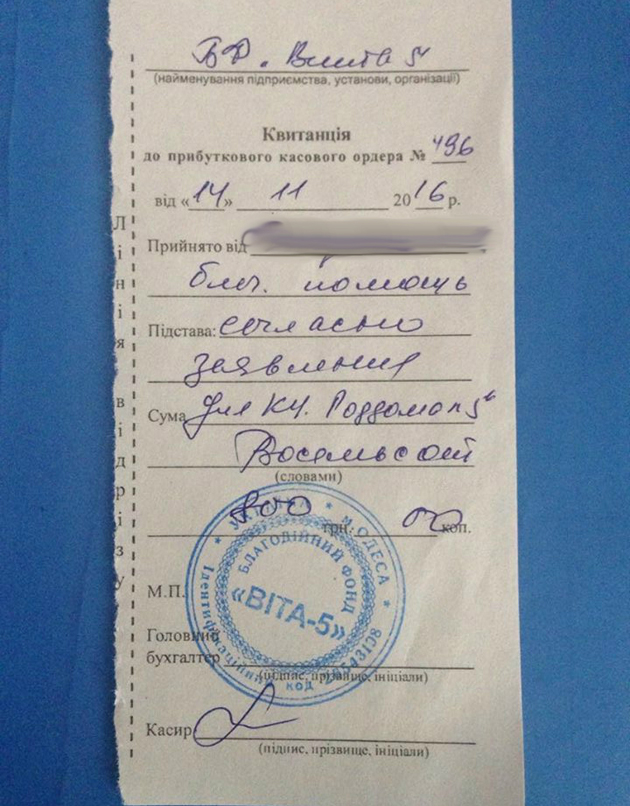 БФ. Вита 5
(найменування підприємства, установи, організації)
Квитанція
до прибуткового касового ордера № 496
від «14» 11 2016 р.
Прийнято від
блг. помощь
Підстава: согласно
заявления
Сума для КУ. Роддом №5
Восемьсот
(словами)
800 грн. 00 коп.
УКРАЇНА * М.ОДЕСА *
БЛАГОДІЙНИЙ ФОНД
«ВІТА-5»
Ідентифікаційний код
М.П.
Головний
бухгалтер
(підпис, прізвище, ініціали)
Касир
(підпис, прізвище, ініціали)
Л
і
н
і
я
в
і
д
р
і
з
у